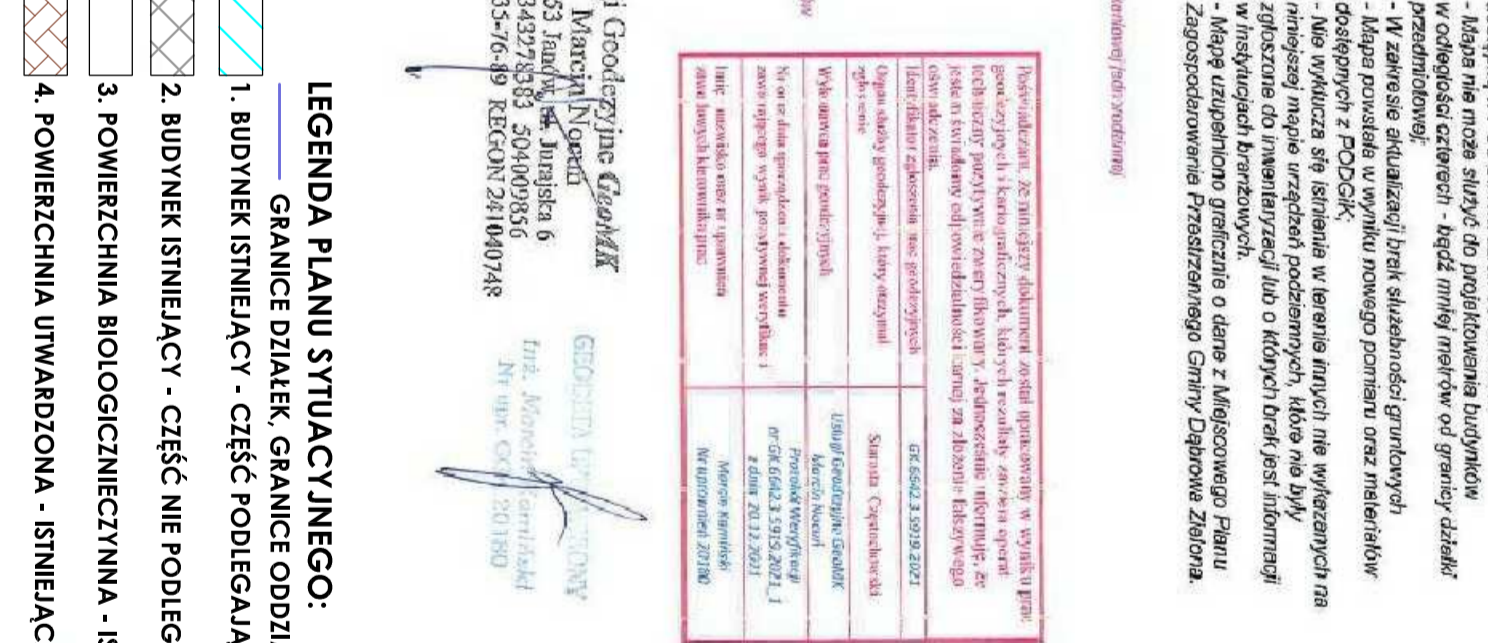 - Mapa nie może służyć do projektowania budynków
w odległości czterech - bądź mniej metrów od granicy działki
przedmiotowej;
- W zakresie aktualizacji brak służebności gruntowych
- Mapa powstała w wyniku nowego pomiaru oraz materiałów
dostępnych z PODGiK;
- Nie wyklucza się istnienia w terenie innych nie wykazanych na
niniejszej mapie urządzeń podziemnych, które nie były
zgłoszone do inwentaryzacji lub o których brak jest informacji
w instytucjach branżowych.
- Mapę uzupełniono graficznie o dane z Miejscowego Planu
Zagospodarowania Przestrzennego Gminy Dąbrowa Zielona.
jednorodzinnej
Poświadczam, że niniejszy dokument został opracowany w wyniku prac
geodezyjnych i kartograficznych, których rezultaty zawiera operat
techniczny pozytywnie zweryfikowany. Jednocześnie informuję, że
jestem świadomy odpowiedzialności karnej za złożenie fałszywego
oświadczenia.
Identyfikator zgłoszenia prac geodezyjnych GK.6642.3.5919.2021
Organ służby geodezyjnej, który otrzymał
zgłoszenie Starosta Częstochowski
Wykonawca prac geodezyjnych Usługi Geodezyjne GeoMK
Marcin Nocuń
Nr oraz data sporządzenia dokumentu
zawierającego wynik pozytywnej weryfikacji Protokół Weryfikacji
nr GK.6642.3.5919.2021_1
z dnia 20.12.2021
Imię, nazwisko oraz nr uprawnień
zawodowych kierownika prac Marcin Kamiński
Nr uprawnień 20180
i Geodezyjne GeoMK
Marcin Nocuń
53 Janów, ul. Jurajska 6
343278383 504009856
35-76-89 REGON 241040748
GEODETA
inż. Kamiński
Nr upr. 20180
LEGENDA PLANU SYTUACYJNEGO:
GRANICE DZIAŁEK, GRANICE ODDZI
1. BUDYNEK ISTNIEJĄCY - CZĘŚĆ PODLEGAJĄ
2. BUDYNEK ISTNIEJĄCY - CZĘŚĆ NIE PODLEG
3. POWIERZCHNIA BIOLOGICZNIECZYNNA - IS
4. POWIERZCHNIA UTWARDZONA - ISTNIEJĄC